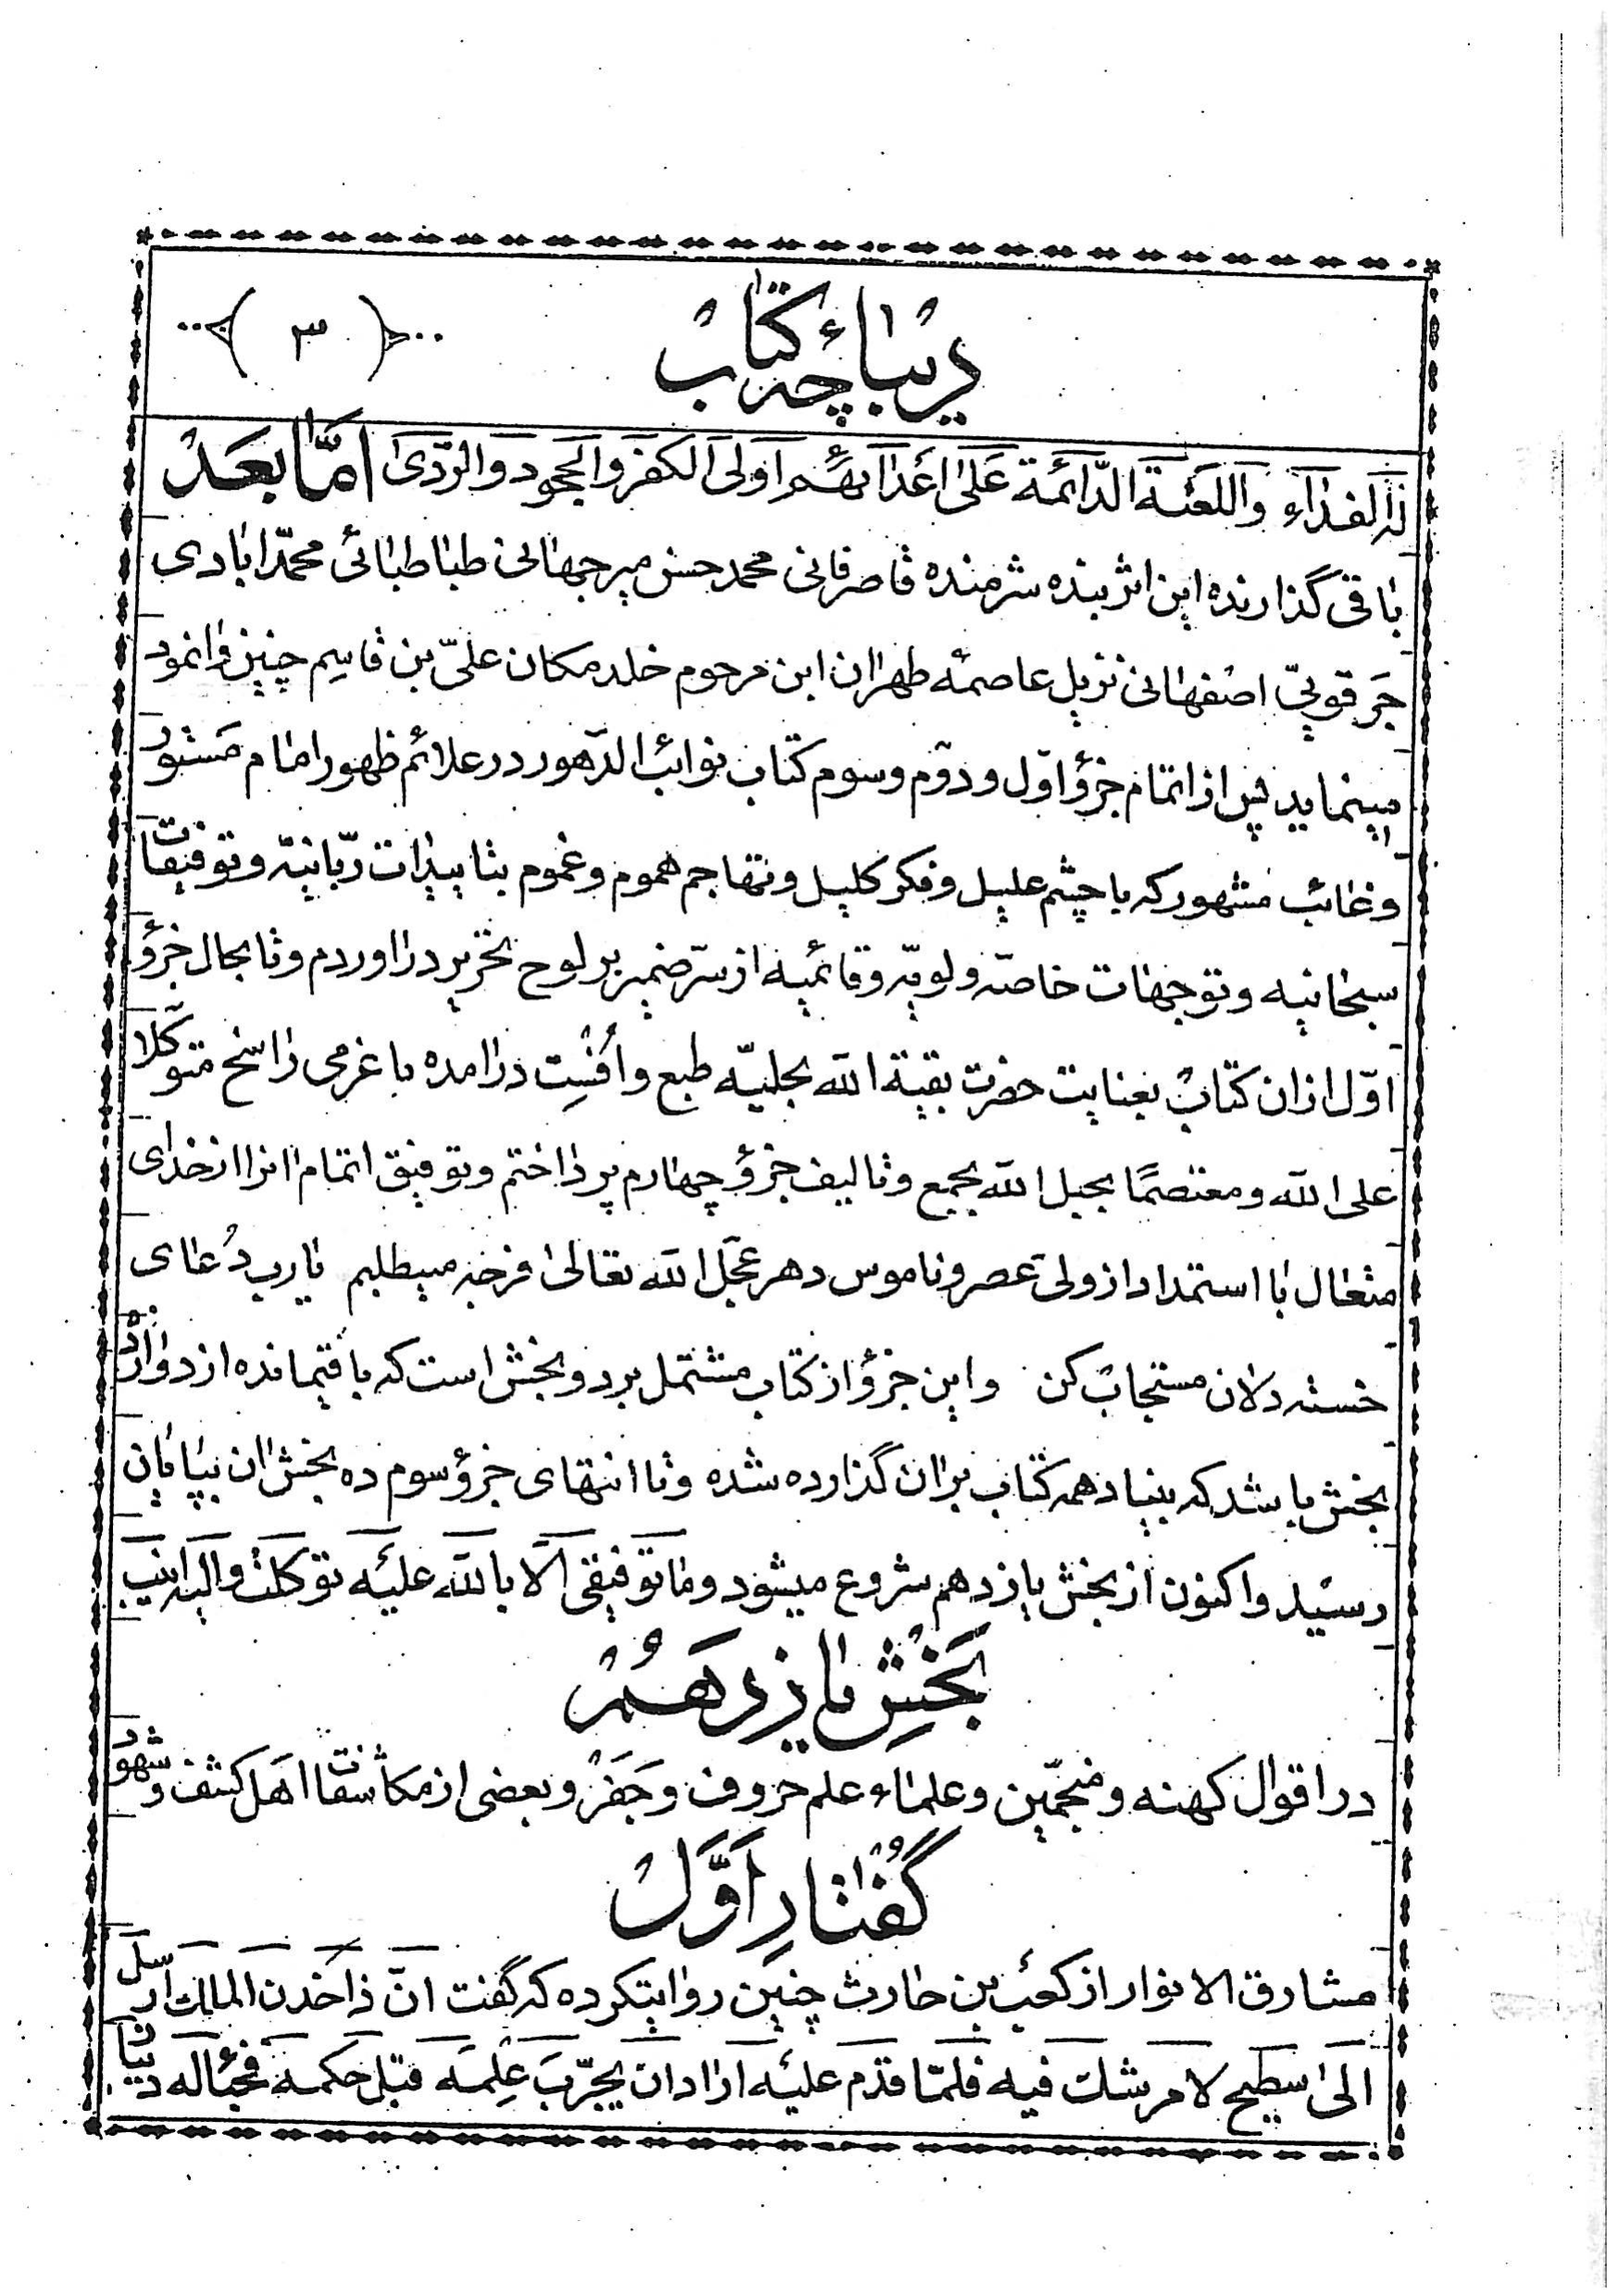 دیباچهٔ کتاب
(۳)
له الفداء واللعنة الدّائمة علی اعدائهم اولی الکفر والجحود والرّدی امّا بعد
باقی گذارنده این اثر بنده شرمنده قاصر فانی محمد حسن میرجهانی طباطبائی محمّدابادی
جرقویی اصفهانی نزیل عاصمه طهران ابن مرحوم خلد مکان علیّ بن قاسم چنین وانمود
مینماید پس از اتمام جزؤ اوّل و دوّم و سوم کتاب نوائب الدّهور در علائم ظهور امام مستور
و غائب مشهور که با چشم علیل و فکر کلیل و تهاجم هموم و غموم بتاییدات ربّانیّه و توفیقات
سبحانیه و توجهات خاصّه ولویّه و قائمیه از سرّ ضمیر بر لوح تحریر دراوردم و تا بحال جزؤ
اوّل از ان کتاب بعنایت حضرت بقیة الله بحلیّه طبع و افست درامده با عزمی راسخ متوکّلا
علی الله و معتصمًا بحبل الله بجمع و تالیف جزؤ چهارم پرداختم و توفیق اتمام انرا از خدای
متعال با استمداد از ولیّ عصر و ناموس دهر عجّل الله تعالی فرجه میطلبم یارب دُعای
خسته دلان مستجاب کن و این جزؤ از کتاب مشتمل بر دو بخش است که باقیمانده از دوازده
بخش باشد که بنیاد همه کتاب بر ان گذارده شده و تا انتهای جزؤ سوم ده بخش ان بپایان
رسید و اکنون از بخش یازدهم شروع میشود وما توفیقی الّا بالله علیه توکلت والیه انیب
بخش یازدهم
در اقوال کهنه و منجّمین و علماء علم حروف و جفر و بعضی از مکاشفات اهل کشف و شهود
گفتار اوّل
مشارق الانوار از کعب بن حارث چنین روایتکرده که گفت انّ ذاخدن الملک ارسل
الی سطیح لامر شکّ فیه فلمّا قدم علیه اراد ان یجرّب علمه قبل حکمه فخبأ له دینارا